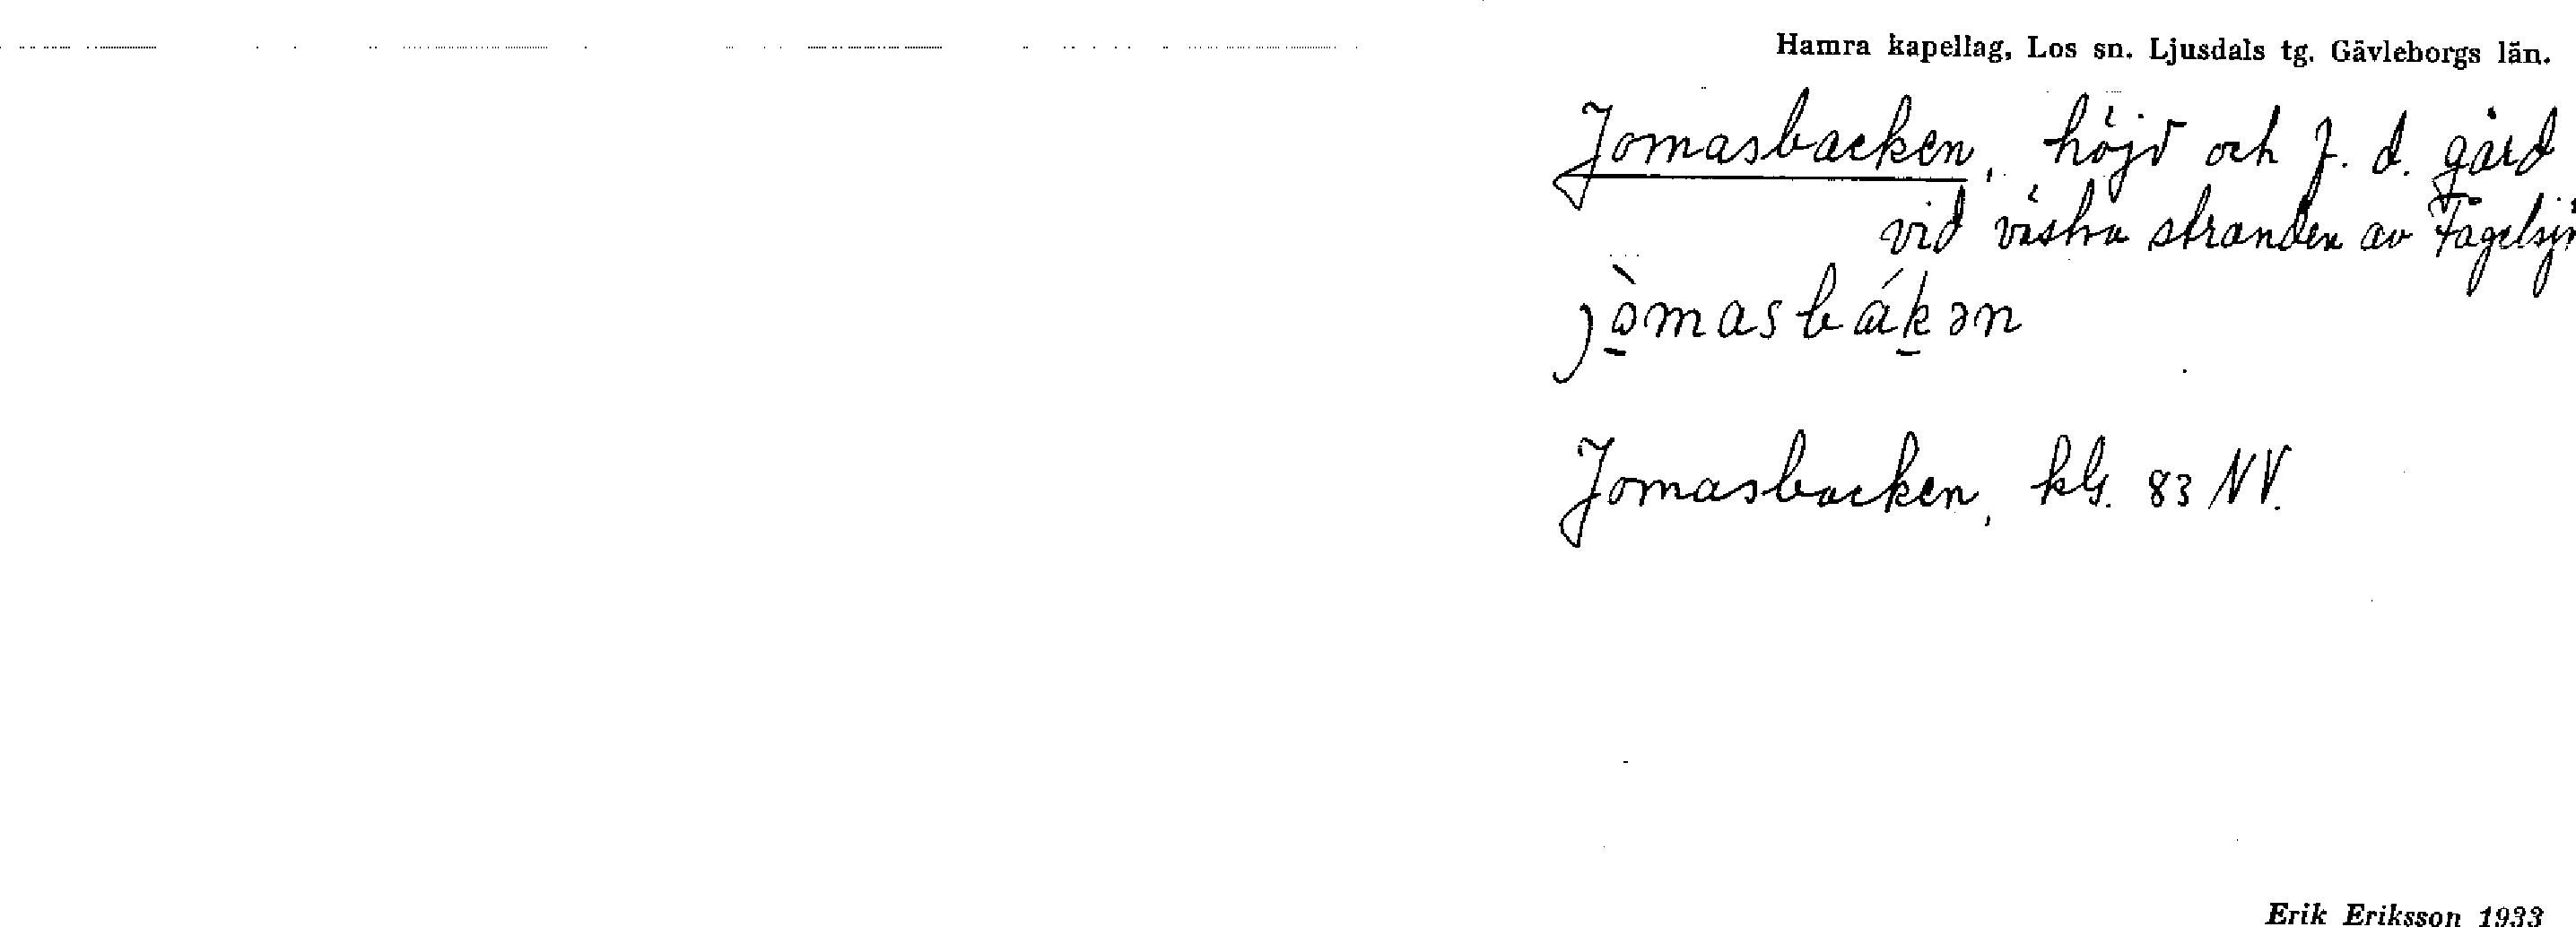 Hamra kapellag, Los sn. Ljusdals tg. Gävleborgs län.
Jomasbacken, höjd och f. d. gård
vid västra stranden av Fågelsjö
jòmasbákən
Jomasbacken, kls. 83 NV.
Erik Eriksson 1933